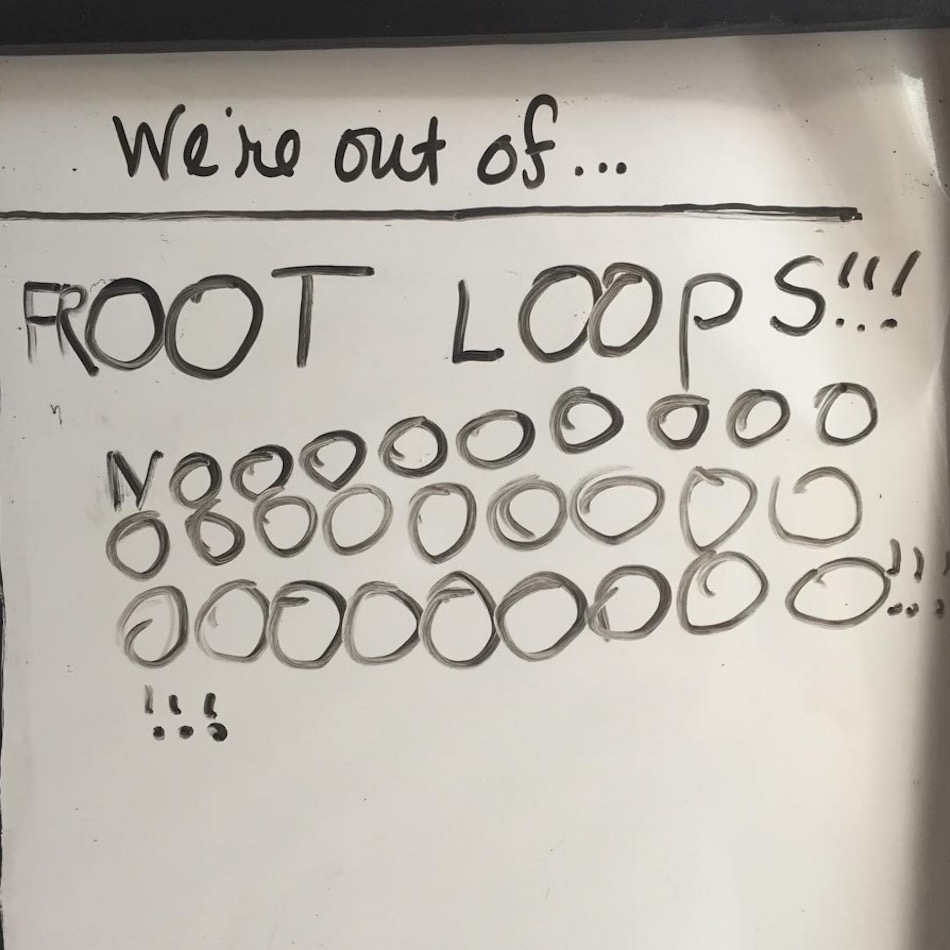 We're out of...
FROOT LOOPS!!!
NOOOOOOOOO
OOOOOOOOO
OOOOOOOOO!!!
!!!